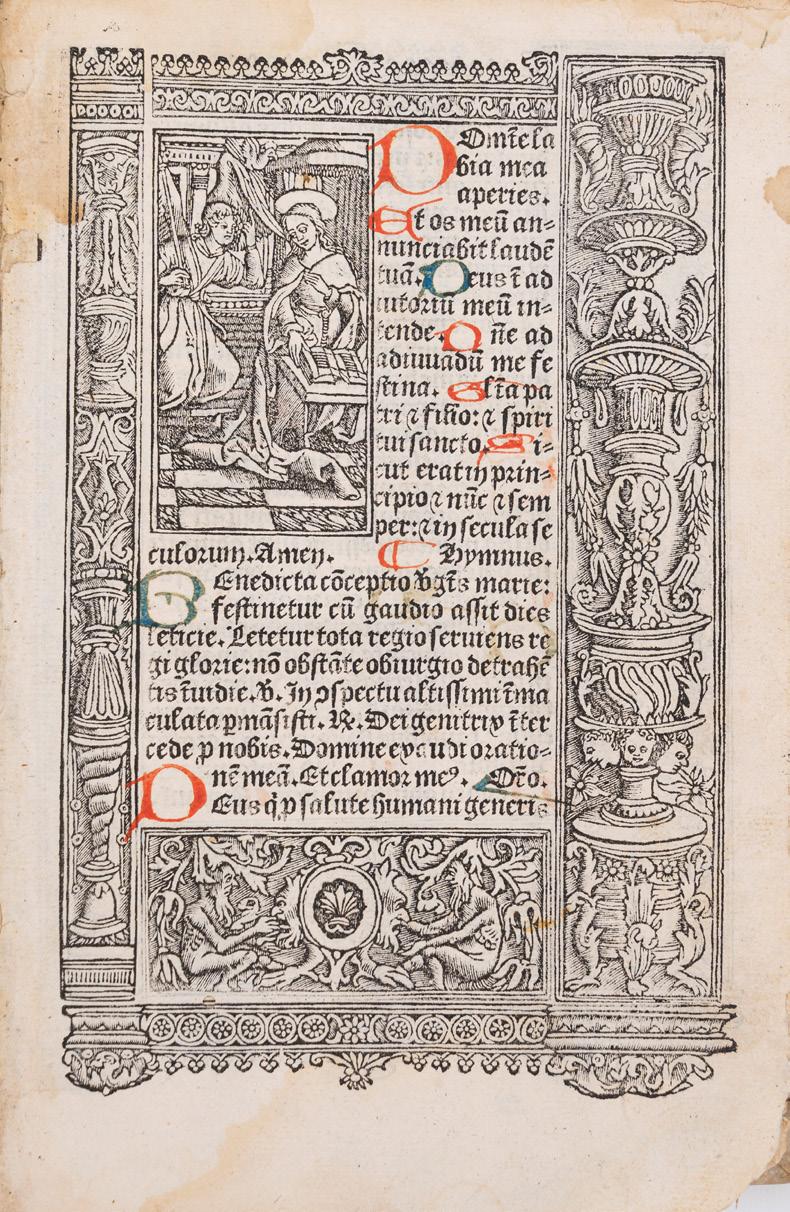 DOmīe la
bia mea
aperies.
Et os meū an-
nunciabit laudē
tuā. Deus ī ad
iutoriū meū in-
tende. Dñe ad
adiuuādū me fe
stina. Gl'ia pa
tri ⁊ filio: ⁊ spiri
tui sancto. Si-
cut erat in prin-
cipio ⁊ nūc ⁊ sem
per: ⁊ in secula se
culorum. Amen. C Hymnus.
BEnedicta cōceptio v̾gīs marie:
festinetur cū gaudio assit dies
leticie. Letetur tota regio seruiens re
gi glorie: nō obstāte obiurgio detrahē
tis īuidie. ℣. In ↄspectu altissimi īma
culata ꝑmāsisti. ℟. Dei genitrix īter
cede ꝓ nobis. Domine exaudi oratio-
nē meā. Et clamor meꝰ. Oro.
DEus q̇ ꝓ salute humani generis